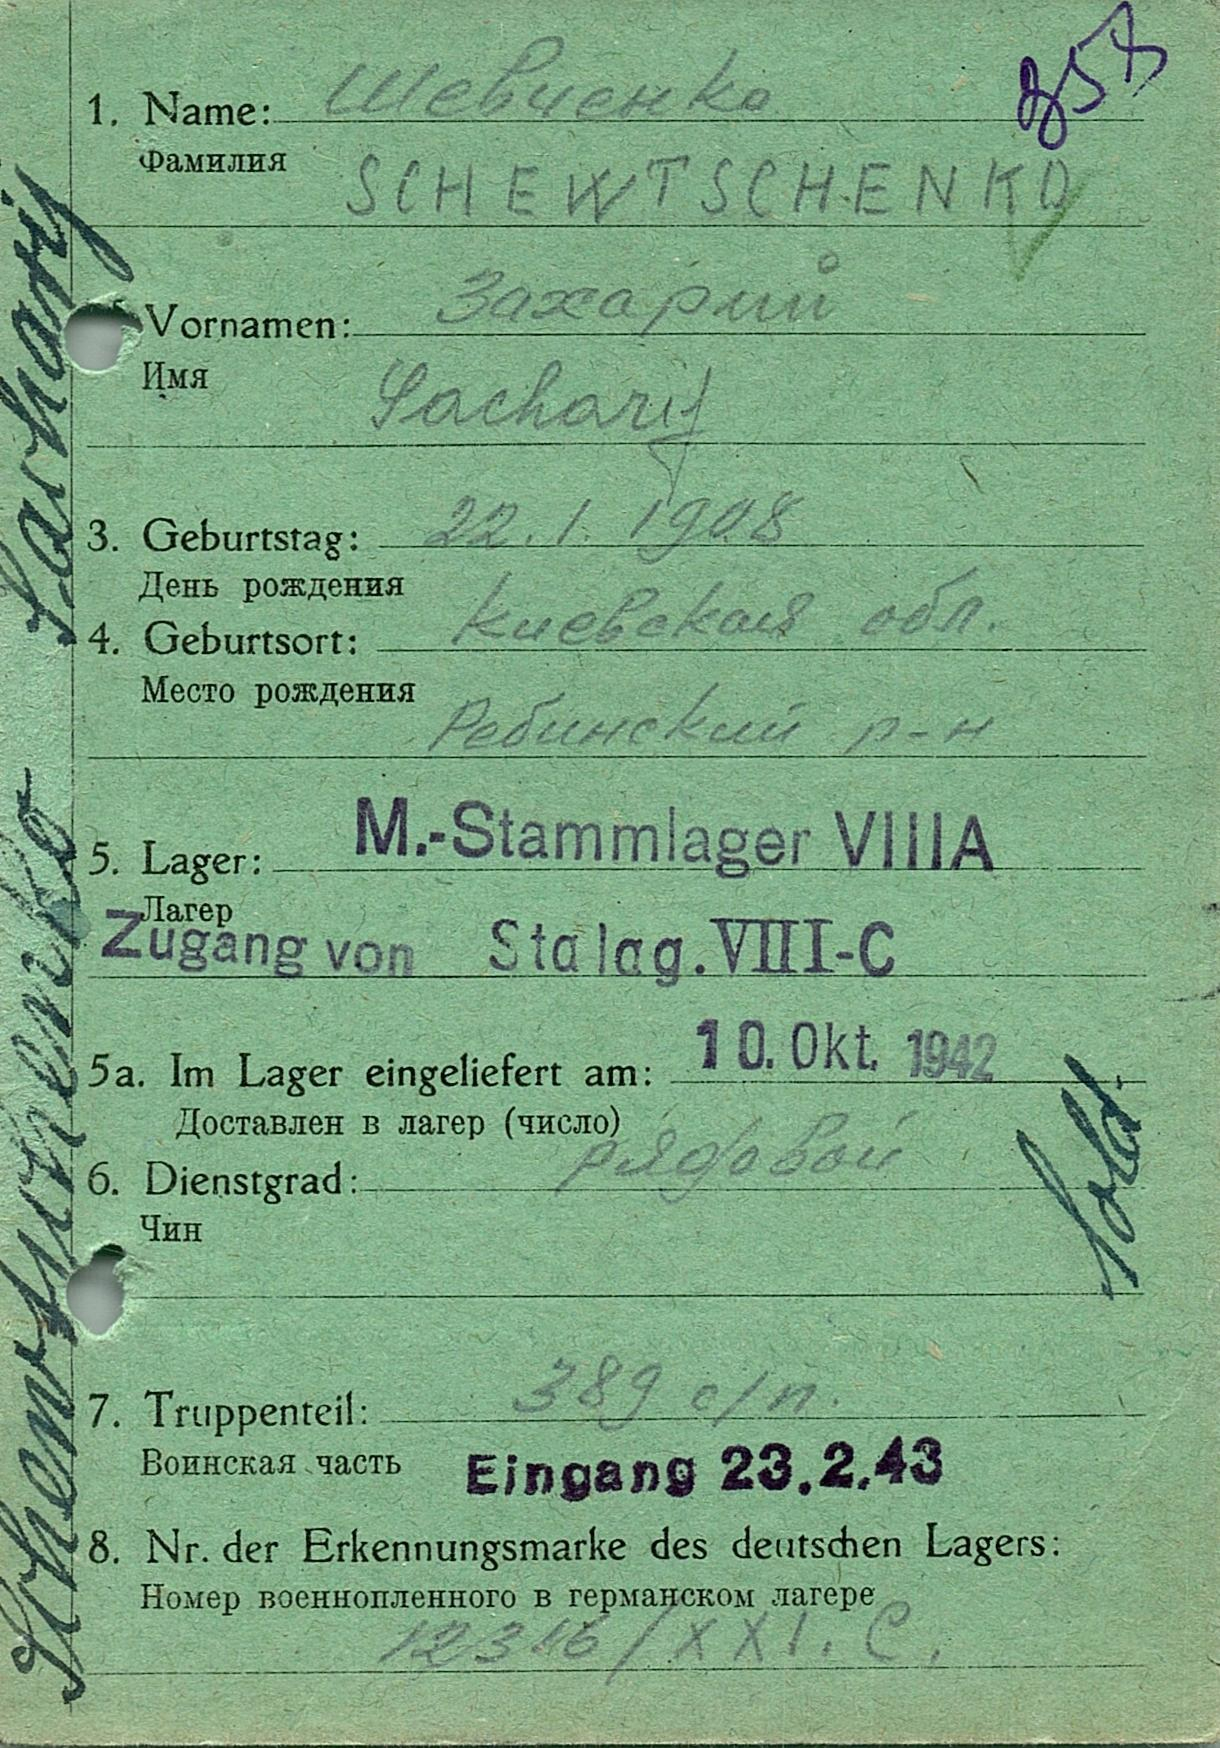 858
1. Name: Шевченко
Фамилия
SCHEWTSCHENKO
Vornamen: Захарий
Имя
Sacharij
3. Geburtstag: 22.1.1908
День рождения
4. Geburtsort: Киевская обл.
Место рождения
Ребинский р-н
5. Lager: M.-Stammlager VIIIA
Лагер
Zugang von Stalag. VIII-C
5a. Im Lager eingeliefert am: 10. Okt. 1942
Доставлен в лагер (число)
6. Dienstgrad: рядовой
Чин
Sold.
7. Truppenteil: 389 с/п.
Воинская часть
Eingang 23.2.43
8. Nr. der Erkennungsmarke des deutschen Lagers:
Номер военнопленного в германском лагере
12316/XXI.C.
Schewtschenko Sacharij